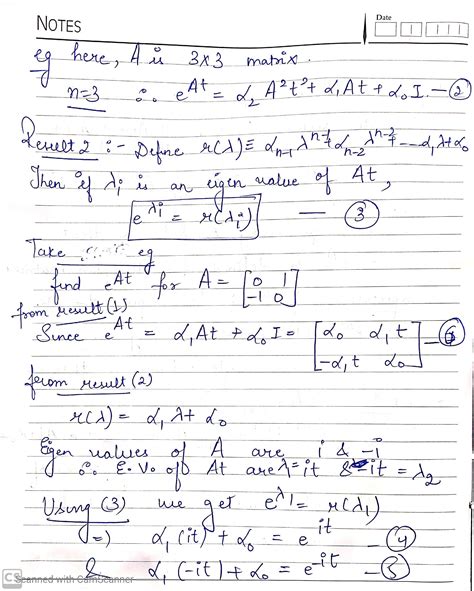 NOTES
Date
eg here, A is 3x3 matrix.
n=3 ∴ e^{At} = α_2 A²t² + α_1 At + α_0 I. — ②
Result 2 :- Define r(λ) ≡ α_{n-1} λ^{n-1} + α_{n-2} λ^{n-2} + --- α_1 λ + α_0
Then if λ_i is an eigen value of At,
e^{λ_i} = r(λ_i) — ③
Take eg
find e^{At} for A = [0 1
-1 0]
from result (1)
Since e^{At} = α_1 At + α_0 I = [α_0 α_1 t
-α_1 t α_0]
from result (2)
r(λ) = α_1 λ + α_0
Eigen values of A are i & -i
∴ E.V. of At are λ_1 = it & -it = λ_2
Using (3) we get e^{λ_1} = r(λ_1)
⇒) α_1 (it) + α_0 = e^{it} — ④
& α_1 (-it) + α_0 = e^{-it} — ⑤
CS Scanned with CamScanner